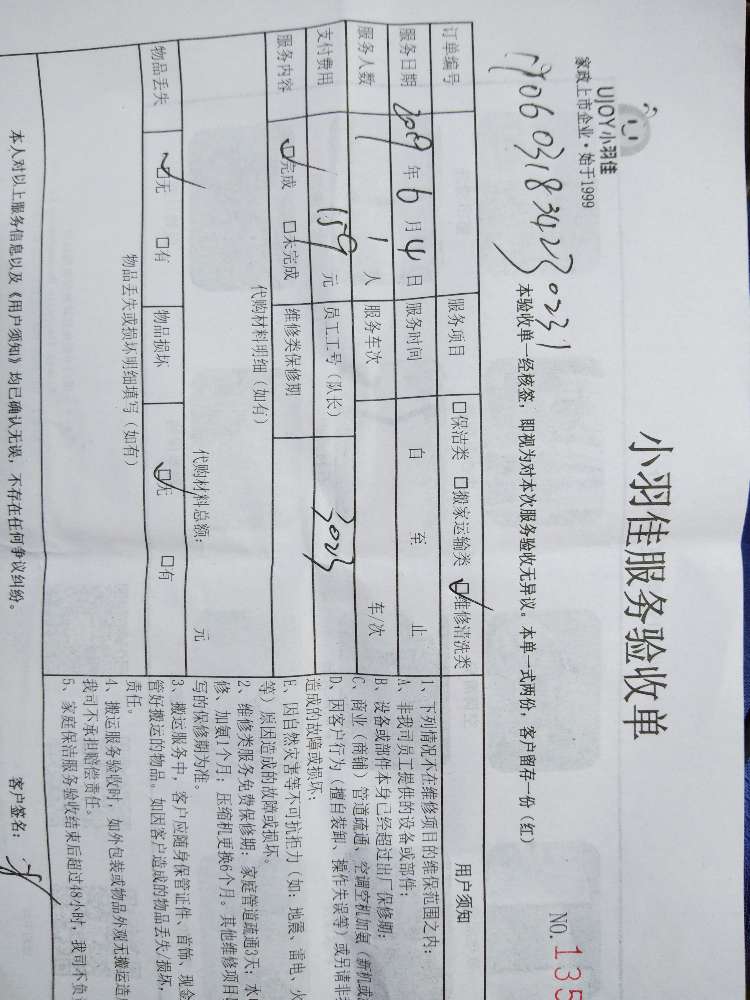 UJOY小羽佳
家政上市企业·始于1999
小羽佳服务验收单
NO.135
本验收单一经核签，即视为对本次服务验收无异议。本单一式两份，客户留存一份（红）
订单编号
服务项目 口保洁类 口搬家运输类 口维修清洗类
服务日期 2019年6月4日 服务时间 自 至 止
服务人数 1 人 服务车次 车/次
支付费用 159 元 员工工号（队长） 3023
服务内容 口完成 口未完成 维修类保修期
代购材料明细（如有）
代购材料总额： 元
物品丢失 口无 口有 物品损坏 口无 口有
物品丢失或损坏明细填写（如有）
用户须知
1、下列情况不在维修项目的维保范围之内：
A、非我司员工提供的设备或部件；
B、设备或部件本身已经超过出厂保修期；
C、商业（商铺）管道疏通、空调空机加氨（新机或
D、因客户行为（擅自装卸、操作失误等）或另请非
造成的故障或损坏；
E、因自然灾害等不可抗拒力（如：地震、雷电、火
等）原因造成的故障或损坏。
2、维修类服务免费保修期：家庭管道疏通3天；水
修、加氨1个月；压缩机更换6个月。其他维修项目
写的保修期为准。
3、搬运服务中，客户应随身保管证件、首饰、现金
管好搬运的物品。如因客户造成的物品丢失/损坏，
责任。
4、搬运服务验收时，如外包装或物品外观无搬运造
我司不承担赔偿责任。
5、家庭保洁服务验收结束后超过48小时，我司不负
本人对以上服务信息以及《用户须知》均已确认无误，不存在任何争议纠纷。
客户签名：